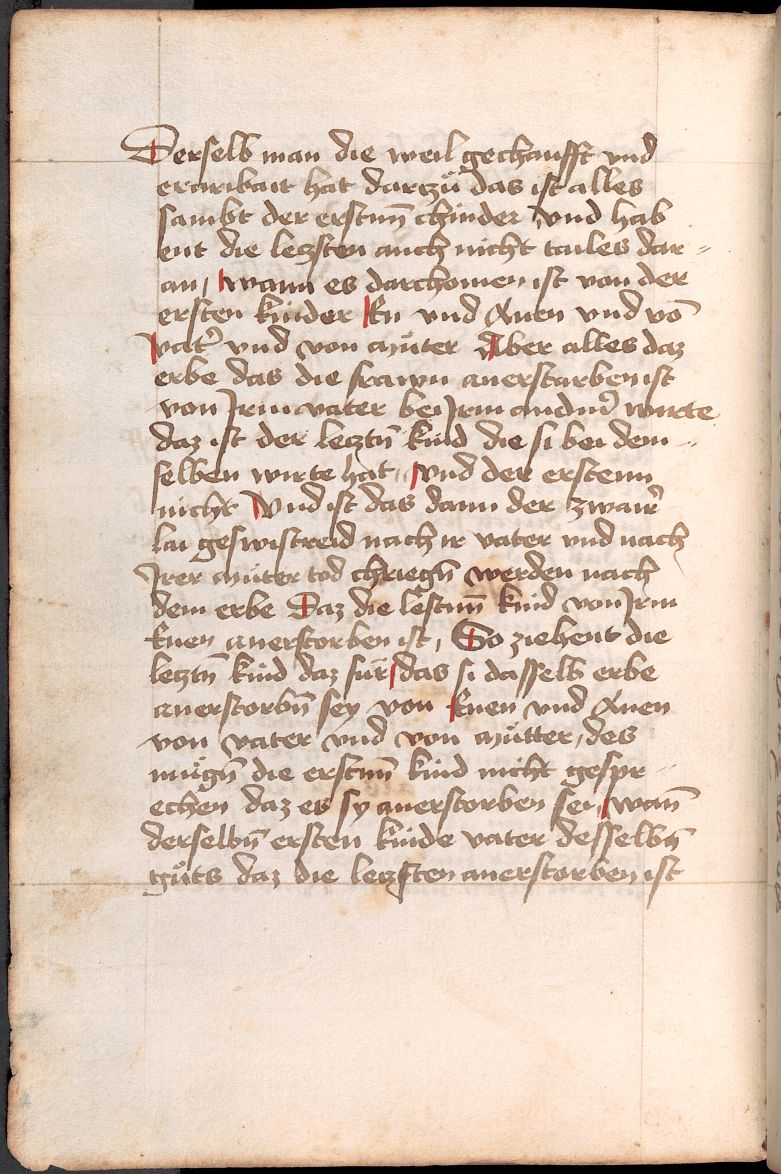 Derselb man die weil gechaufft vnd
eraribait hat dartzů das ist alles
sambt der erstnn̄ chinder vnd hab
ent die letzsten auch nicht tailes dar⸗
an, wann es darchomen ist von der
ersten kinder En vnd Anen vnd vō
vat̄ vnd von můter Aber alles daz
erbe das die frawn anerstarben ist
von Irm vater bei Irm andn̄ wirte
daz ist der letztn̄ kind die si bei dem⸗
selben wirte hat, vnd der erstenn
nicht Vnd ist das dann der zwair̄
lai geswistreid nach ir vater vnd nach
Irer můter tod chriegn̄ werden nach
dem erbe Daz die lestnn̄ kind von Irm
Enen anerstorben ist, So ziehent die
letztn̄ kind daz für das si dasselb erbe
anerstorbn̄ sey von Enen vnd Anen
von vater vnd von můtter, des
můgn̄ die erstnn̄ kind nicht gespr⸗
echen daz es sy anerstorben sei, wan̄
derselbn̄ ersten kinde vater desselbn̄
gůts daz die letzsten anerstorben ist